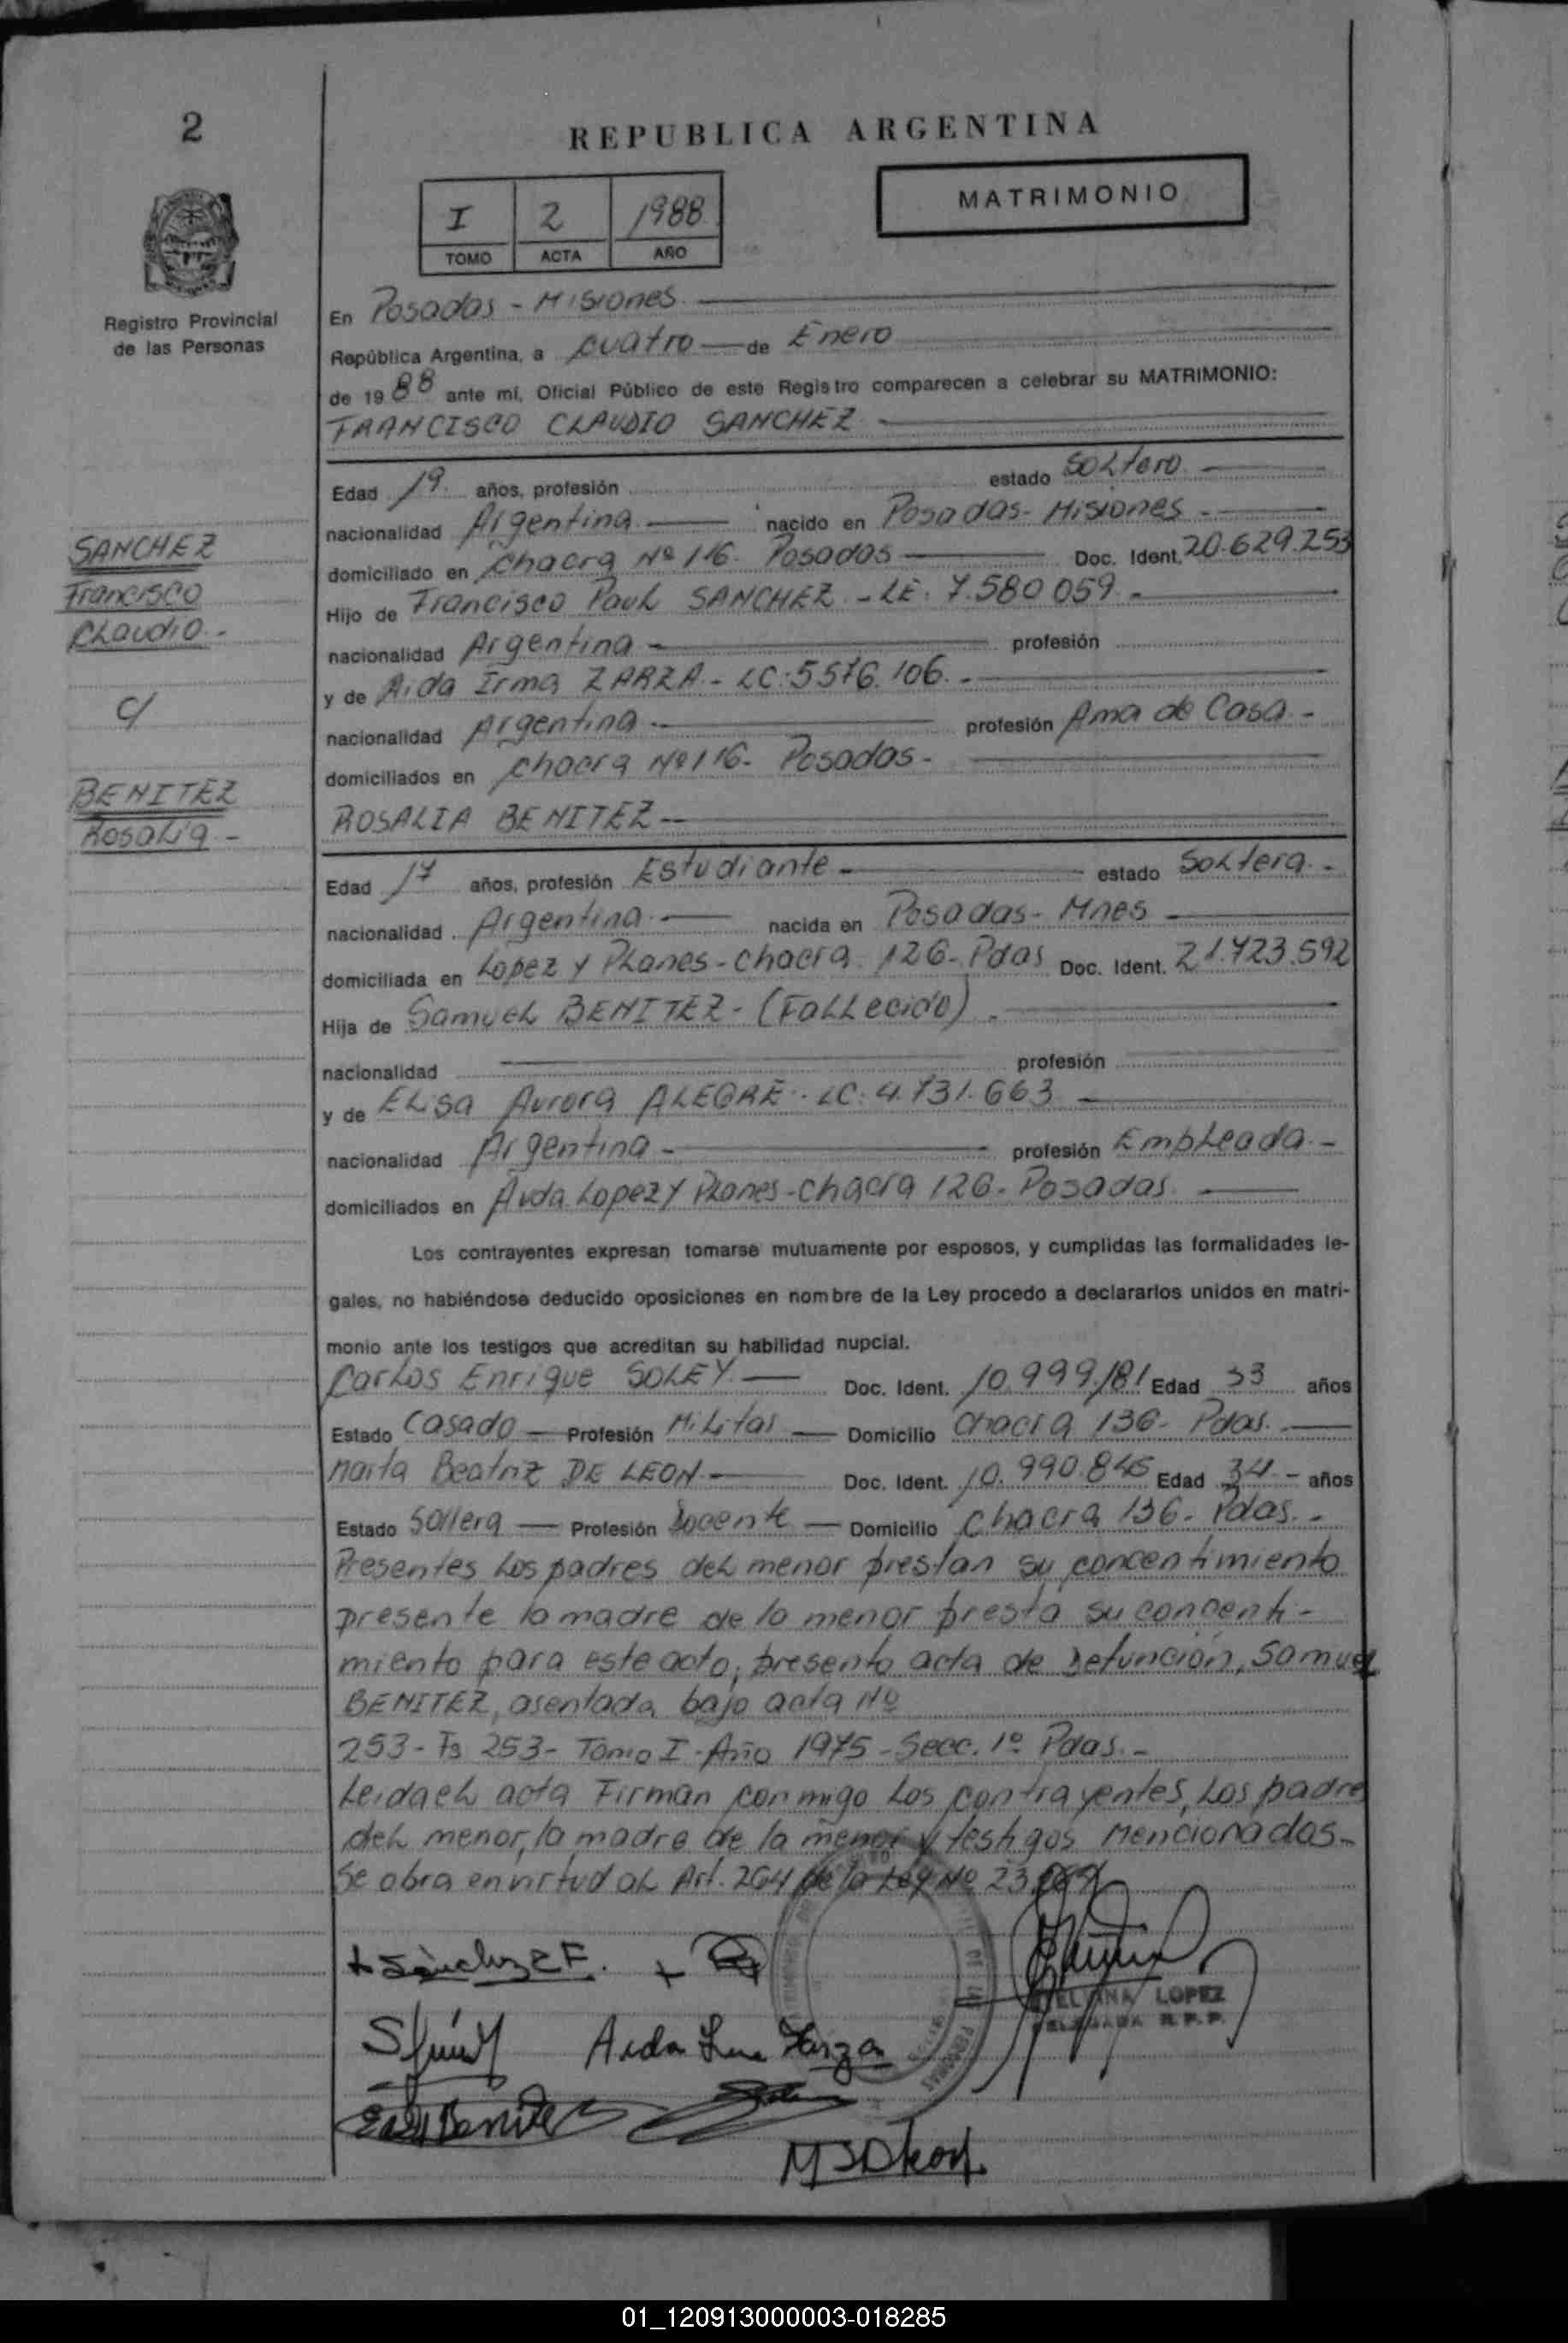 2
REPUBLICA ARGENTINA
MATRIMONIO
I 2 1988
TOMO ACTA AÑO
Registro Provincial
de las Personas
En Posadas - Misiones
República Argentina, a cuatro de Enero
de 1988 ante mí, Oficial Público de este Registro comparecen a celebrar su MATRIMONIO:
FRANCISCO CLAUDIO SANCHEZ
Edad 19 años, profesión estado Soltero
nacionalidad Argentina nacido en Posadas - Misiones
domiciliado en Chacra Nº 116 Posadas Doc. Ident. 20.629.253
Hijo de Francisco Paul SANCHEZ - LE. 7.580 059 -
nacionalidad Argentina - profesión
y de Aida Irma ZARZA - LC: 5576.106. -
nacionalidad Argentina - profesión Ama de Casa -
domiciliados en Chacra Nº 116 - Posadas -
ROSALIA BENITEZ -
SANCHEZ
Francisco
Claudio -
c/
BENITEZ
Rosalia -
Edad 17 años, profesión Estudiante - estado Soltera -
nacionalidad Argentina nacida en Posadas - Mnes
domiciliada en Lopez y Planes - chacra 126 - Pdas Doc. Ident. 21.723.592
Hija de Samuel BENITEZ - (Fallecido) -
nacionalidad profesión
y de Elisa Aurora ALEGRE - LC: 4.731.663
nacionalidad Argentina - profesión Empleada -
domiciliados en Avda Lopez y Planes - chacra 126 - Posadas
Los contrayentes expresan tomarse mutuamente por esposos, y cumplidas las formalidades le-
gales, no habiéndose deducido oposiciones en nombre de la Ley procedo a declararlos unidos en matri-
monio ante los testigos que acreditan su habilidad nupcial.
Carlos Enrique SOLEY Doc. Ident. 10.999.181 Edad 33 años
Estado Casado Profesión Militar Domicilio Chacra 136 - Pdas.
Marta Beatriz DE LEON Doc. Ident. 10.990.845 Edad 34 - años
Estado Soltera Profesión Docente Domicilio Chacra 136 - Pdas. -
Presentes los padres del menor prestan su concentimiento
presente la madre de la menor presta su concenti-
miento para este acto, presento acta de Defunción, Samuel
BENITEZ, asentada bajo acta Nº
253 - Fs 253 - Tomo I - Año 1975 - Secc. 1º Pdas. -
Leida el acta Firman conmigo los contrayentes, los padre
del menor, la madre de la menor y testigos Mencionados -
Se obra en virtud al Art. 264 de la Ley Nº 23.
Sánchez F.
Aida Irma Zarza
LOPEZ
R. P. P.
Benitez
01_120913000003-018285